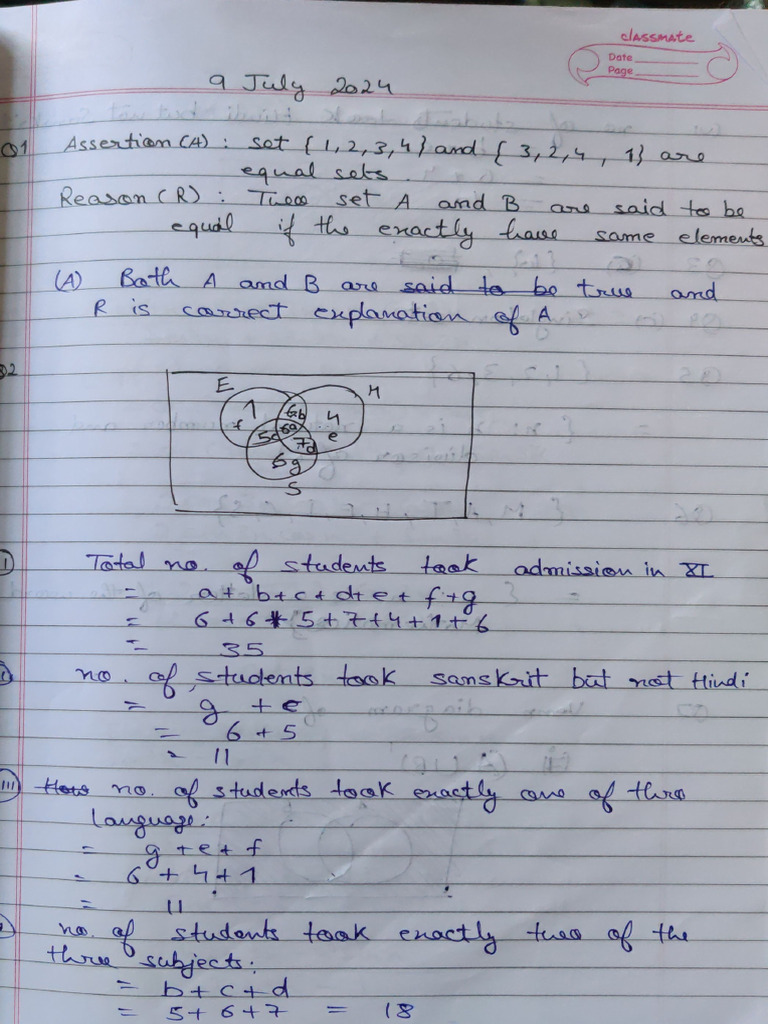 classmate
Date
Page
9 July 2024
Q1 Assertion (A) : set { 1, 2, 3, 4 } and { 3, 2, 4 , 1} are
equal sets.
Reason (R) : Two set A and B are said to be
equal if the exactly have same elements
(A) Both A and B are said to be true and
R is correct explanation of A
Q2
E H
1 6b 4
f 6a e
5c 7d
6g
S
Total no. of students took admission in XI
= a + b + c + d + e + f + g
= 6 + 6 + 5 + 7 + 4 + 1 + 6
= 35
no. of students took sanskrit but not Hindi
= g + c
= 6 + 5
= 11
(iii) How no. of students took exactly one of thre
language:
= g + e + f
= 6 + 4 + 1
= 11
no. of students took exactly two of the
three subjects:
= b + c + d
= 5 + 6 + 7 = 18